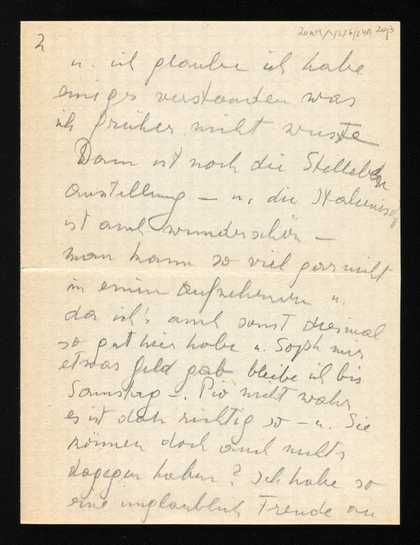 2
u. ich glaube ich habe
einiges verstanden was
ich früher nicht wusste
Dann ist noch die
austellung – u. die
ist auch wunderschön –
man kann so viel gar nicht
in einem aufnehmen u.
da ich's auch sonst diesmal
so gut hier habe u. Soph mir
etwas Geld gab bleibe ich bis
Samstag –. nicht wahr
es ist doch richtig so – u. Sie
können doch auch nichts
dagegen haben? Ich habe so
eine unglaublich Freude an